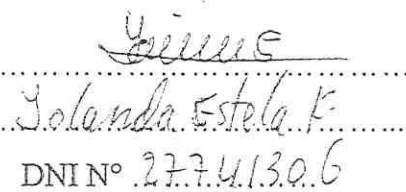 Yolanda Estela F
DNI Nº 27741306